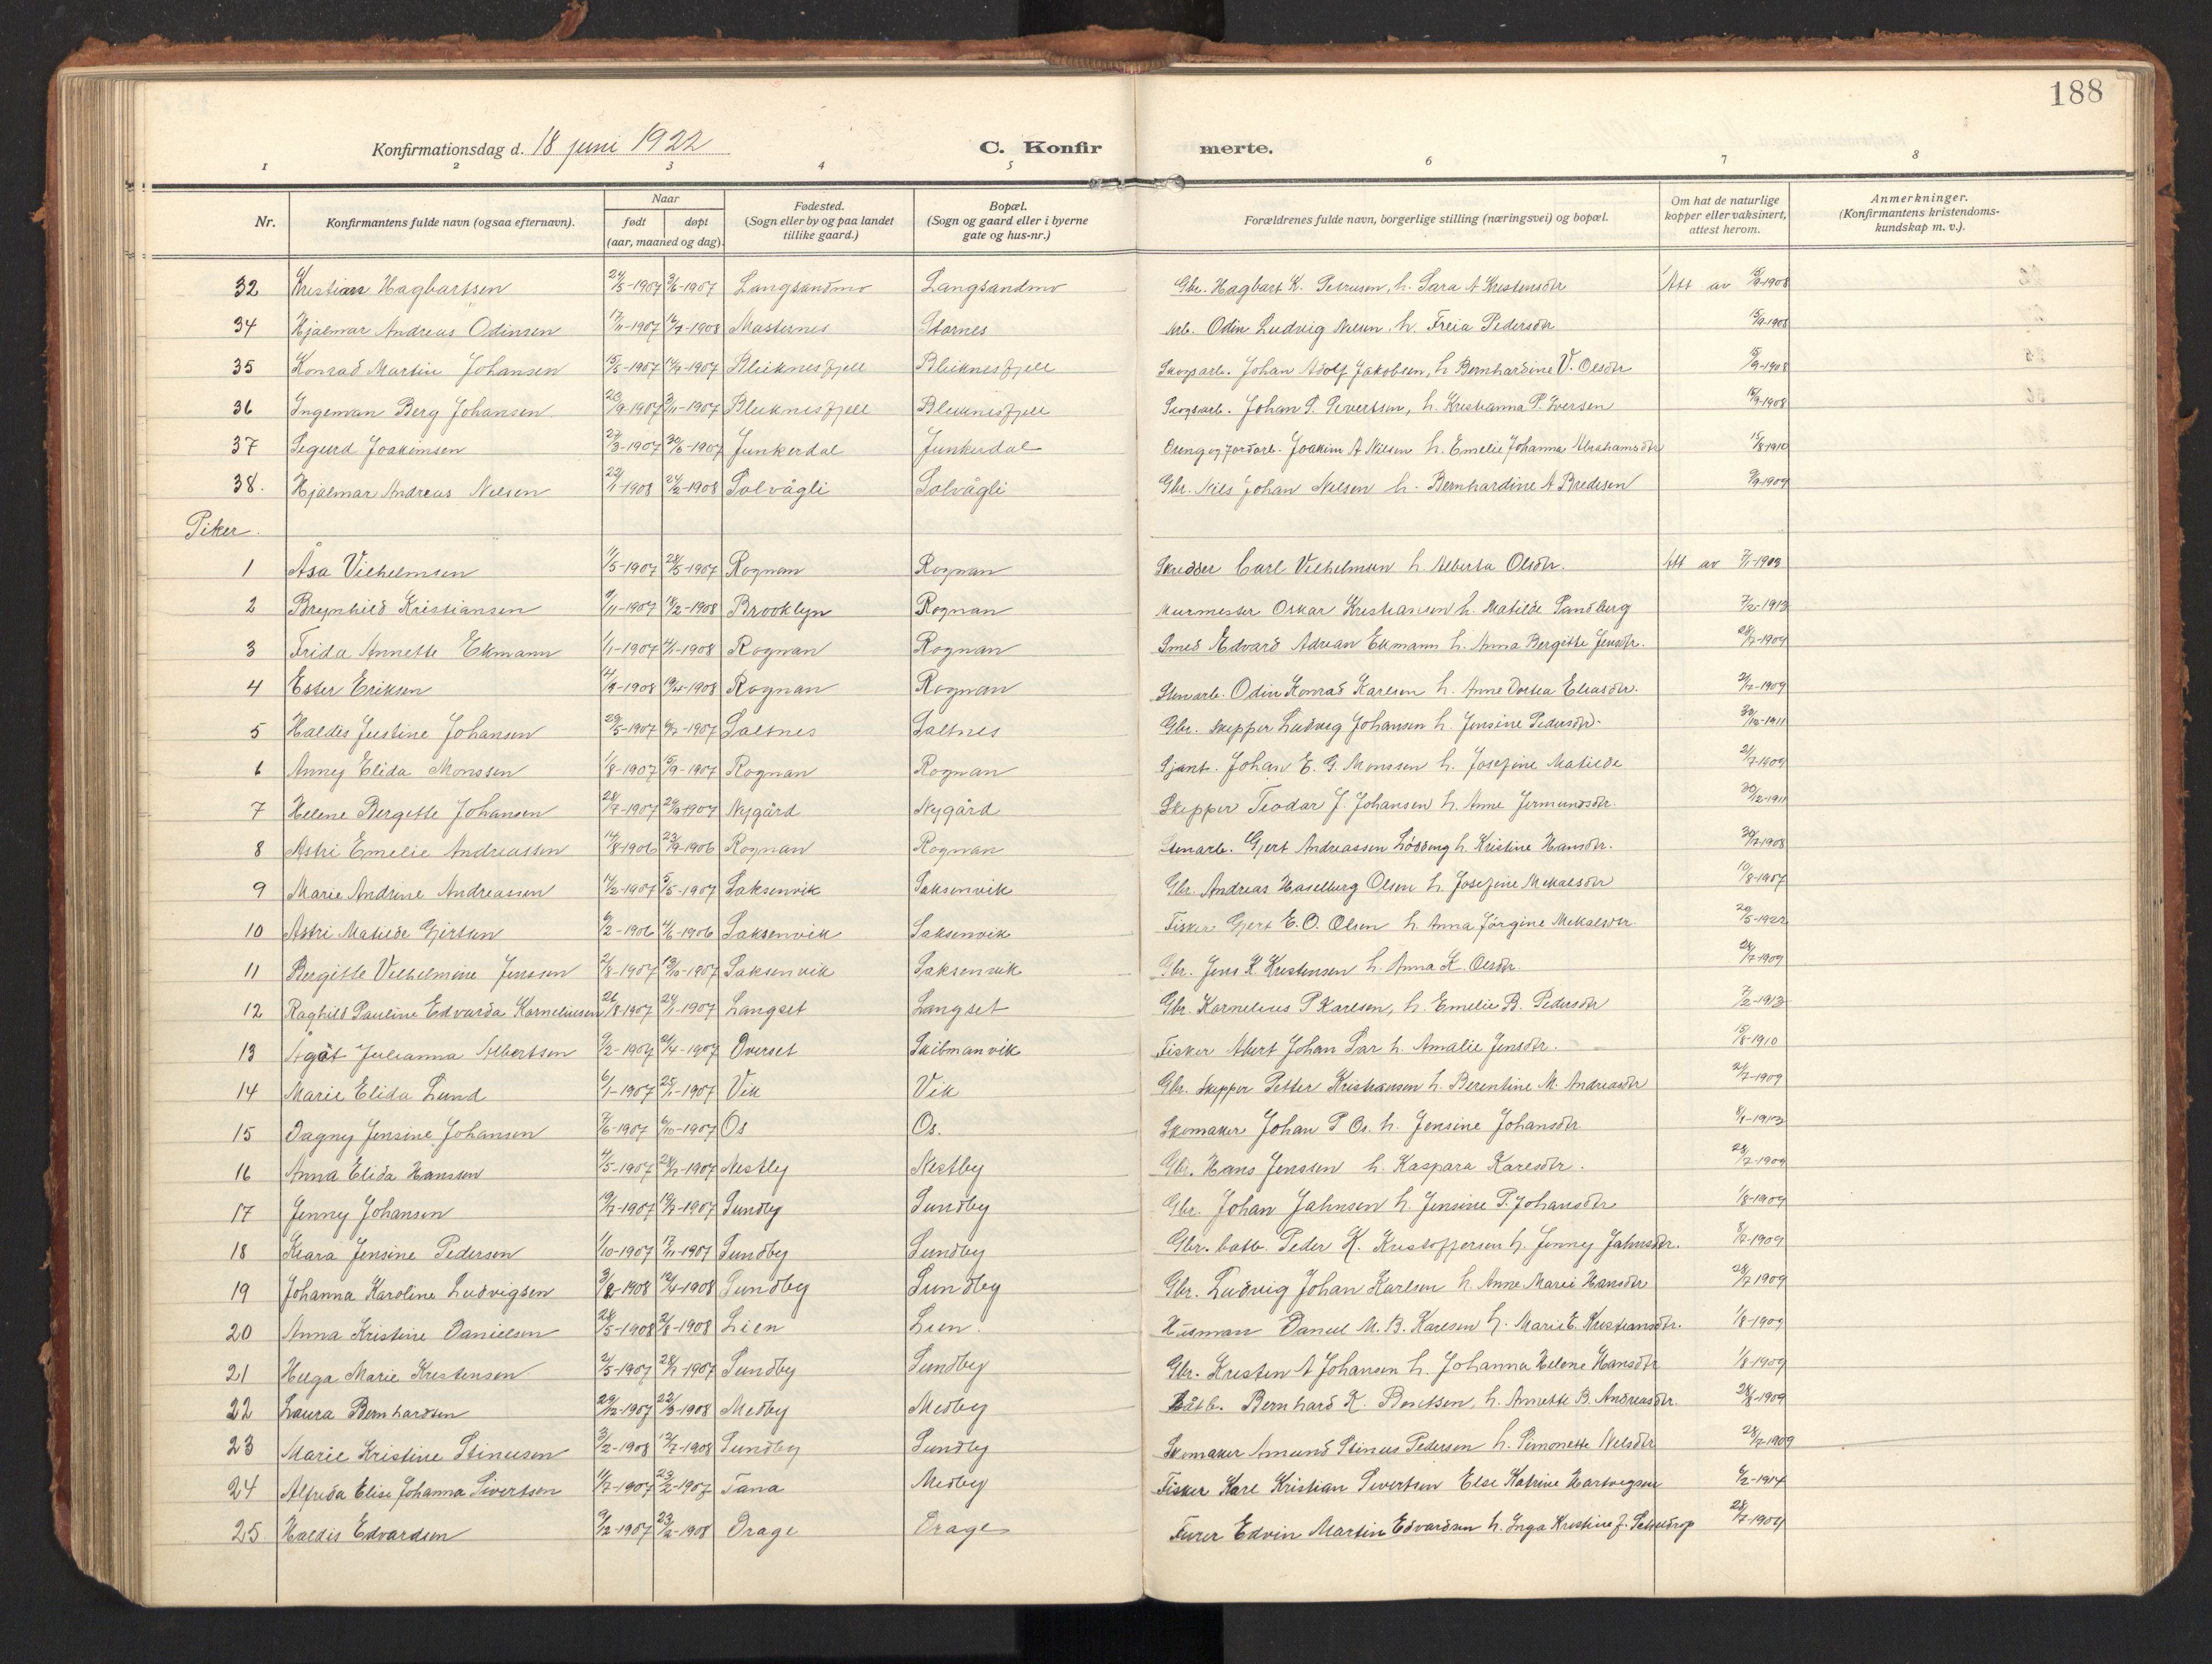 188
Konfirmationsdag d. 18 juni 1922 C. Konfirmerte.
1 2 3 4 5 6 7 8
Nr. Konfirmantens fulde navn (ogsaa efternavn). Naar født døpt (aar, maaned og dag). Fødested. (Sogn eller by og paa landet tillike gaard.) Bopæl. (Sogn og gaard eller i byerne gate og hus-nr.) Forældrenes fulde navn, borgerlige stilling (næringsvei) og bopæl. Om hat de naturlige kopper eller vaksinert, attest herom. Anmerkninger. (Konfirmantens kristendomskundskap m. v.).
32 Kristian Hagbartsen 24/5-1907 9/6-1907 Langsandmo Langsandmo Gbr. Hagbart K. Petrusen, h. Sara A Kristensdtr Att av 15/9-1908
34 Hjalmar Andreas Odinsen 17/11-1907 1908 Masternes Stornes Arb. Odin Ludvig Nilsen, h. Freia Pedersdtr 15/9-1908
35 Konrad Martin Johansen 15/5-1907 14/7-1907 Bleiknesfjell Bleiknesfjell Skogsarb. Johan Adolf Jakobsen, h Bernhardine V. Olsdtr 15/9-1908
36 Ingeman Berg Johansen 20/9-1907 3/11-1907 Bleiknesfjell Bleiknesfjell Skogsarb. Johan S. Sivertsen, h. Kristianna P. Iversen 15/9-1908
37 Sigurd Joakimsen 27/3-1907 30/6-1907 Junkerdal Junkerdal Joakim A Nilsen h. Emelie Johanna Abrahamsdtr 15/8-1910
38. Hjalmar Andreas Nilsen 22/1-1908 24/2-1908 Solvågli Solvågli Gbr. Nils Johan Nilsen h. Bernhardine A Bredesen 9/9-1909
Piker.
1 Åsa Vilhelmsen 11/5-1907 28/5-1907 Rognan Rognan Skredder Carl Vilhelmsen h. Alberta Olsdtr. Att av 7/1-1909
2 Brynhild Kristiansen 9/11-1907 18/2-1908 Brooklyn Rognan Murmester Oskar Kristiansen h. Matilde Sandberg 7/2-1913
3 Frida Annette Ekmann 1/1-1907 4/1-1908 Rognan Rognan Smed Edvard Adrian Ekmann h. Anna Bergitte Jensdtr. 28/7-1909
4 Ester Eriksen 14/9-1908 19/4-1908 Rognan Rognan Stenarb. Odin Konrad Karlsen h. Anne Dortea Eliasdtr. 21/7-1909
5 Haldis Justine Johansen 29/5-1907 6/7-1907 Saltnes Saltnes Gbr. Skipper Ludvig Johansen h. Jensine Pedersdtr. 30/12-1911
6 Anny Elida Monssen 1/8-1907 15/9-1907 Rognan Rognan Johan E. G. Monssen h. Josefine Matilde 21/7-1909
7 Helene Bergitte Johansen 28/7-1907 29/9-1907 Nygård Nygård Skipper Teodor J. Johansen h. Anne Jermundsdtr. 30/12-1911
8 Astri Emelie Andreassen 14/8-1906 23/9-1906 Rognan Rognan Stenarb. Gjert Andreassen Lødding h. Kristine Hansdtr. 30/7-1908
9 Marie Andrine Andreassen 17/2-1907 5/5-1907 Saksenvik Saksenvik Gbr. Andreas Haselberg Olsen h. Josefine Mikalsdtr 10/8-1907
10 Astri Matilde Gjertsen 6/2-1906 4/6-1906 Saksenvik Saksenvik Fisker Gjert E. O. Olsen h. Anna Jörgine Mikalsdtr. 20/5-1922
11 Bergitte Vilhelmine Jenssen 2/8-1907 13/10-1907 Saksenvik Saksenvik Gbr. Jens K. Kristensen h. Anna K. Olsdtr. 28/7-1909
12 Raghild Pauline Edvarda Korneliussen 26/8-1907 24/11-1907 Langset Langset Gbr. Kornelius P Karlsen, h. Emelie B. Pedersdtr 7/2-1913
13 Ågöt Julianna Albertsen 9/2-1907 21/4-1907 Överset Skibmanvik Fisker Abert Johan Lar h. Amalie Jensdtr. 15/8-1910
14 Marie Elida Lund 6/1-1907 25/1-1907 Vik Vik Gbr. Skipper Petter Kristiansen h. Berentine M. Andreasdtr 21/7-1909
15 Dagny Jensine Johansen 7/6-1907 6/10-1907 Os Os. Skomaker Johan P Os. h. Jensine Johansdtr 8/1-1913
16 Anna Elida Hanssen 4/5-1907 28/7-1907 Nestby Nestby Gbr. Hans Jenssen h. Kaspara Karlsdtr. 28/7-1909
17 Jenny Johansen 19/7-1907 Sundby Sundby Gbr. Johan Jahnsen h. Jensine P. Johansdtr 1/8-1909
18 Klara Jensine Pedersen 1/10-1907 17/11-1907 Sundby Sundby Gbr. båtb. Peder K. Kristoffersen h. Jenny Jahnsdtr. 8/7-1909
19 Johanna Karoline Ludvigsen 3/2-1908 12/4-1908 Sundby Sundby Gbr. Ludvig Johan Karlsen h. Anne Marie Hansdtr 28/7 1909
20 Anna Kristine Danielsen 28/5-1908 2/8-1908 Lien Lien. Husman Daniel M. B. Karlsen h. Marie E. Kristiansdtr. 1/8-1909
21 Helga Marie Kristensen 2/5-1907 28/7-1907 Sundby Sundby Gbr. Kristen A Johansen h. Johanna Helene Hansdtr 1/8-1909
22 Laura Bernhardsen 29/12-1907 22/3-1908 Medby Medby Båtb. Bernhard K. Bentsen, h. Annette B. Andreasdtr. 28/8-1909
23 Marie Kristine Stinussen 3/2-1908 12/7-1908 Sundby Sundby Skomaker Amund Stinus Pedersen h. Simonette Nilsdtr 28/7 1909
24 Alfrida Elise Johanna Sivertsen 11/7-1907 23/2-1907 Tana Medby Fisker Karl Kristian Sivertsen Else Katrine Hartvigsen 6/2-1914
25. Haldis Edvardsen 9/12-1907 23/2-1908 Drage Drage Furer Edvin Martin Edvardsen h. Inga Kristine J. Scheldrop 28/7-1909